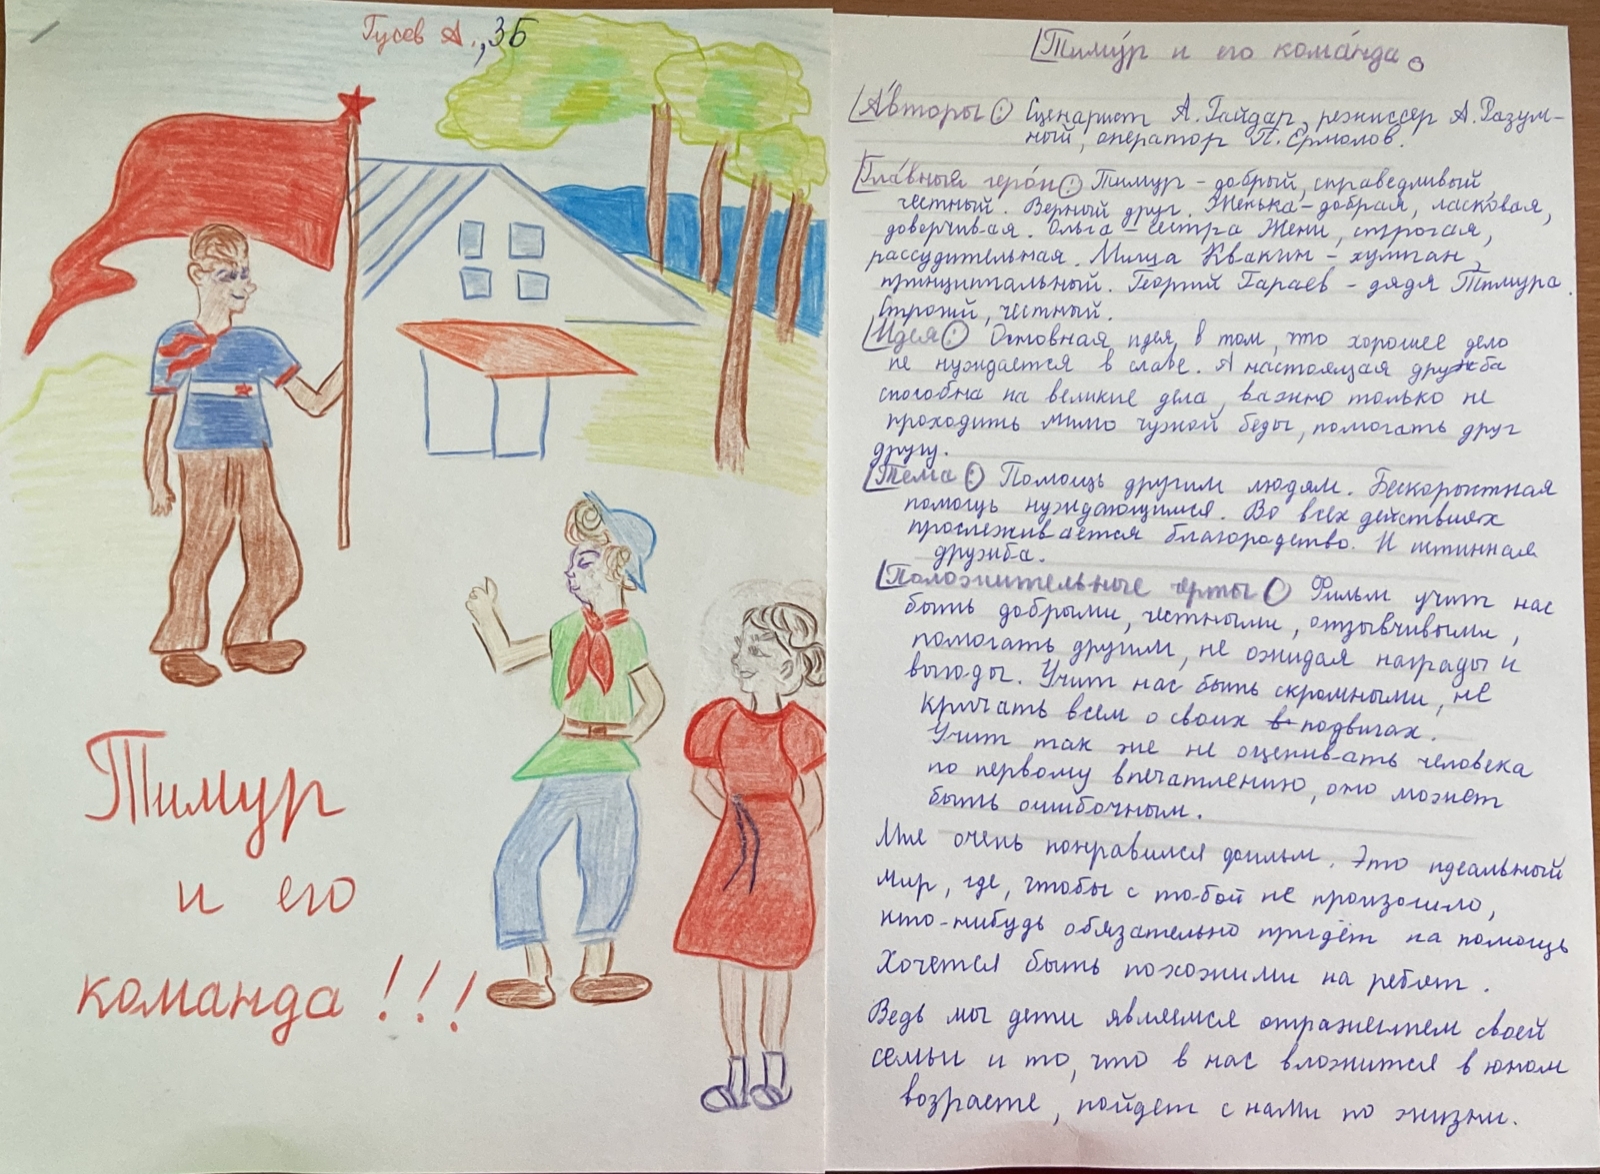 Гусев А., 3Б
Тимур
и его
команда!!!
Тиму́р и его кома́нда.
А́вторы: Сценарист А. Гайдар, режиссер А. Разум-
ный, оператор П. Ермолов.
Гла́вные геро́и: Тимур – добрый, справедливый,
честный. Верный друг. Женька – добрая, ласковая,
доверчивая. Ольга – сестра Жени, строгая,
рассудительная. Миша Квакин – хулиган,
принципиальный. Георгий Гараев – дядя Тимура.
Строгий, честный.
Идея: Основная идея, в том, что хорошее дело
не нуждается в славе. А настоящая дружба
способна на великие дела, важно только не
проходить мимо чужой беды, помогать друг
другу.
Тема: Помощь другим людям. Бескорыстная
помощь нуждающимся. Во всех действиях
прослеживается благородство. И истинная
дружба.
Положительные черты: Фильм учит нас
быть добрыми, честными, отзывчивыми,
помогать другим, не ожидая награды и
выгоды. Учит нас быть скромными, не
кричать всем о своих в подвигах.
Учит так же не оценивать человека
по первому впечатлению, оно может
быть ошибочным.
Мне очень понравился фильм. Это идеальный
мир, где, чтобы с тобой не произошло,
кто-нибудь обязательно придёт на помощь
Хочется быть похожими на ребят.
Ведь мы дети являемся отражением своей
семьи и то, что в нас вложится в юном
возрасте, пойдет с нами по жизни.